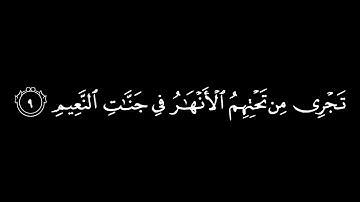 تَجْرِى مِن تَحْتِهِمُ ٱلْأَنْهَٰرُ فِى جَنَّٰتِ ٱلنَّعِيمِ ٩